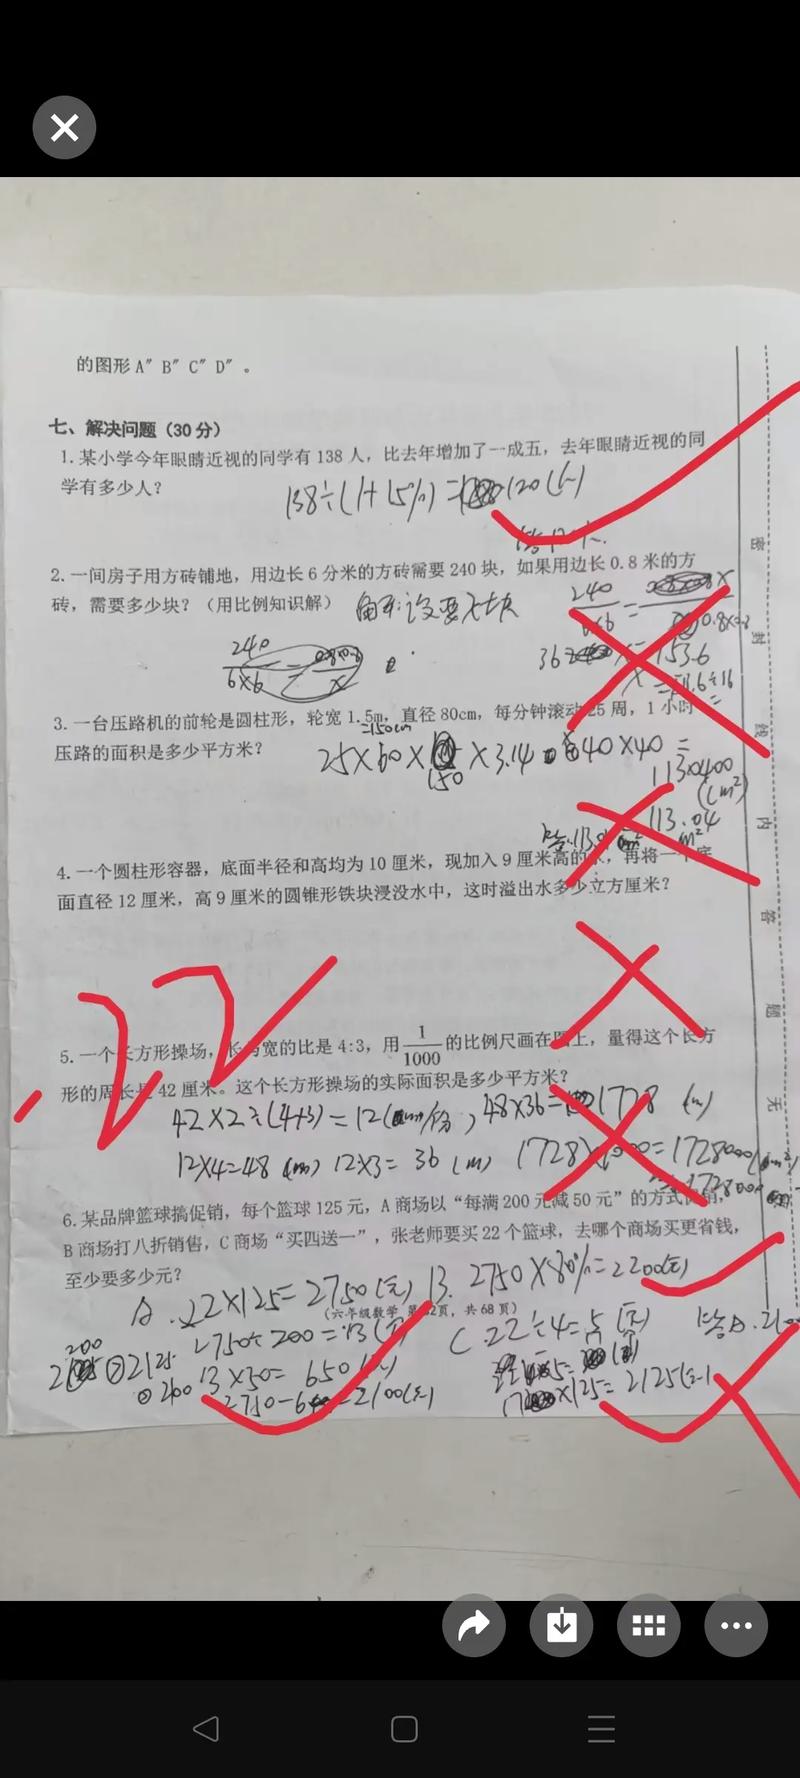 的图形 A″ B″ C″ D″ 。
七、解决问题（30 分）
1. 某小学今年眼睛近视的同学有 138 人，比去年增加了一成五，去年眼睛近视的同
学有多少人？
138÷(1+15%)=120(人)
2. 一间房子用方砖铺地，用边长 6 分米的方砖需要 240 块，如果用边长 0.8 米的方
砖，需要多少块？（用比例知识解）
解:设要x块
240
6×6
240
6×6
x
153.6
3. 一台压路机的前轮是圆柱形，轮宽 1.5m，直径 80cm，每分钟滚动 25 周，1 小时
=150cm
压路的面积是多少平方米？
25×60×
150
×3.14
40×40=
1130400
(cm²)
113.04
m²
4. 一个圆柱形容器，底面半径和高均为 10 厘米，现加入 9 厘米高的水，再将一个底
面直径 12 厘米，高 9 厘米的圆锥形铁块浸没水中，这时溢出水多少立方厘米？
22
5. 一个长方形操场，长与宽的比是 4:3，用 1/1000 的比例尺画在图上，量得这个长方
形的周长是 42 厘米。这个长方形操场的实际面积是多少平方米？
42×2÷(4+3)=12
48×36=1728
12×4=48 (cm) 12×3=36 (m)
=1728000
6. 某品牌篮球搞促销，每个篮球 125 元，A 商场以“每满 200 元减 50 元”的方式促销，
B 商场打八折销售，C 商场“买四送一”，张老师要买 22 个篮球，去哪个商场买更省钱，
至少要多少元？
A. 22×125=2750(元) B. 2750×80%=2200(元)
（六年级数学 第 62页，共 68 页）
2750÷200=13(个)
C. 22÷4=5
答A. 2100
200
② 2125
13×50=650
×125=2125(元)
2100(元)
密
封
线
内
答
题
无